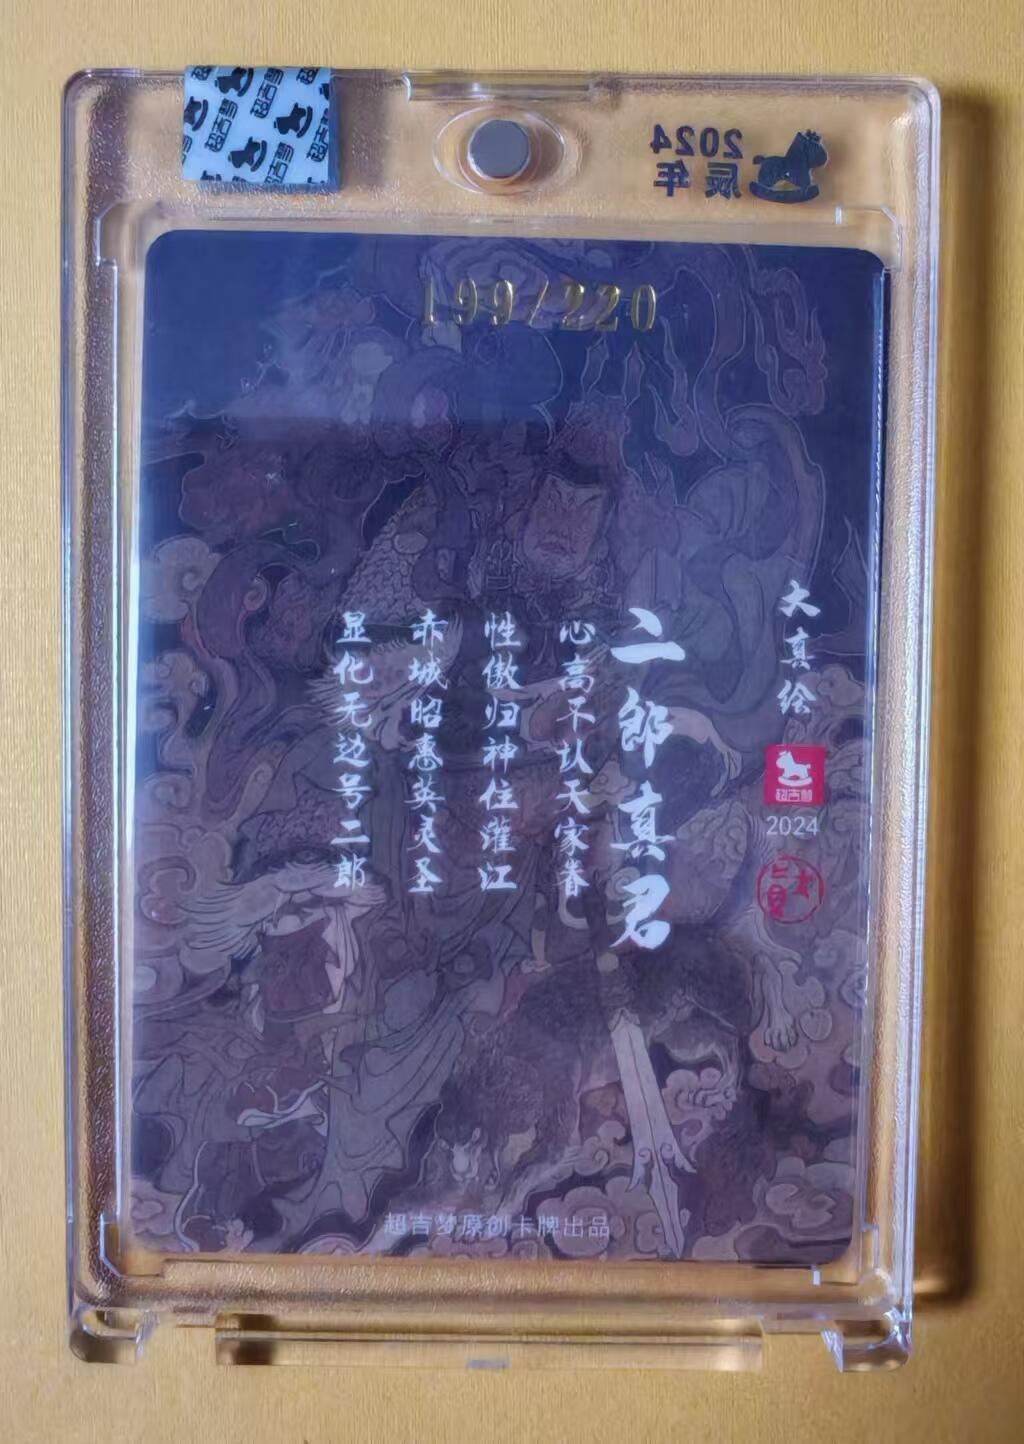 2024
辰年
199/220
大真绘
超吉梦
2024
二郎真君
心高不认天家眷
性傲归神住灌江
赤城昭惠英灵圣
显化无边号二郎
超吉梦原创卡牌出品